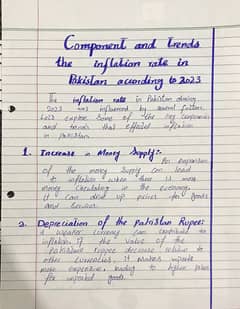 Component and Trends
the inflation rate in
Pakistan according to 2023
The inflation rate in Pakistan during
2023 was influenced by several factors.
Let's explore some of the key components
and trends that effected inflation
in pakistan.
1. Increase in Money Supply:- An expansion
of the money supply can lead
to inflation when there is more
money circulating in the economy,
it can drive up prices for goods
and services.
2. Depreciation of the Pakistan Rupee:
A weaker currency can contribute to
inflation. If the value of the
Pakistani rupee decrease relative to
other currencies, it makes imports
more expensive, leading to higher prices
for imported goods.